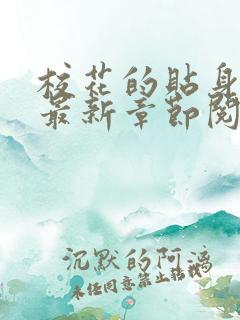 校花的贴身
最新章节阅
沉默的阿漓
未经同意禁止转载